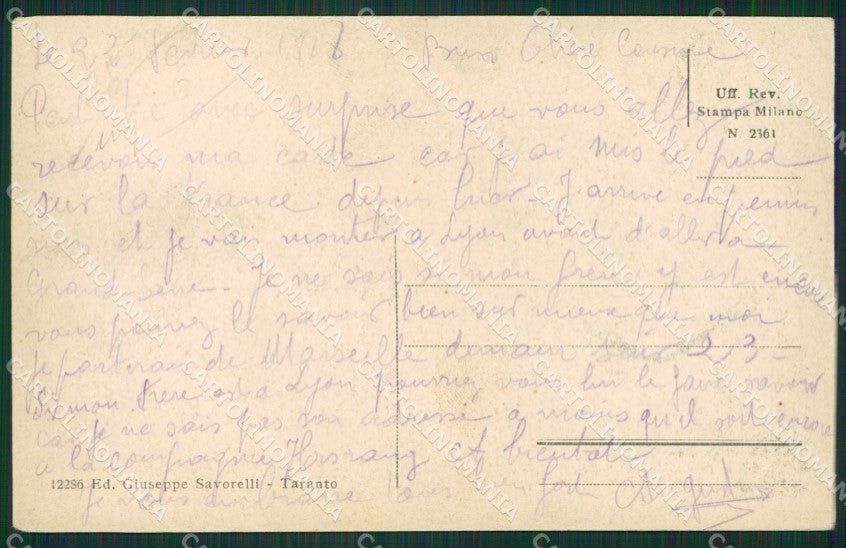 Le 22 Février 1918 Bien Chère Cousine
Peut être avec surprise que vous allez
recevoir ma carte car j'ai mis le pied
sur la France depuis hier. J'arrive en permis
sion et je vais monter a Lyon avant d'aller a
Grand Serre. Je ne sais si mon frère y est encore
vous pouvez le savoir bien sur mieux que moi
Je partirai de Marseille demain soir 23
Si mon frère est a Lyon pourriez vous lui le faire savoir
car je ne sais pas son adresse a moins qu'il soit encore
a la compagnie Horsrang et bientot
Je vous embrasse tous bien fort
Uff. Rev.
Stampa Milano
N 2361
12286 Ed. Giuseppe Savorelli - Taranto
CARTOLINOMANIA